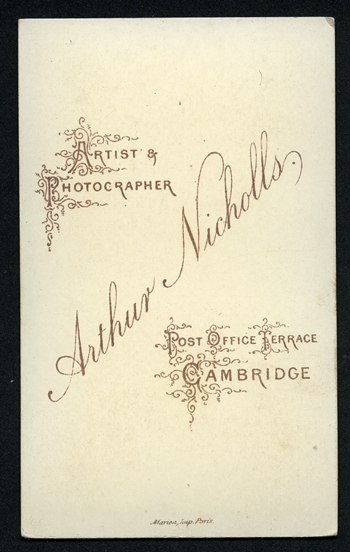 Artist &
Photographer
Arthur Nicholls.
Post Office Terrace
Cambridge
Marion, Imp. Paris.